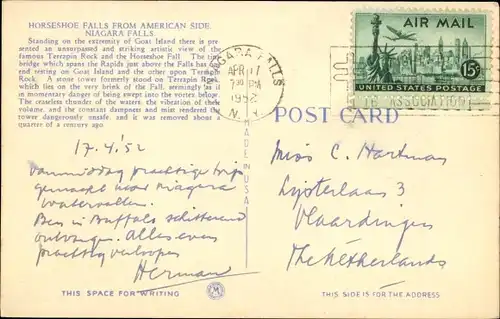 HORSESHOE FALLS FROM AMERICAN SIDE,
NIAGARA FALLS.
Standing on the extremity of Goat Island there is pre-
sented an unsurpassed and striking artistic view of the
famous Terrapin Rock and the Horseshoe Fall. The
bridge which spans the Rapids just above the Falls has
end resting on Goat Island and the other upon Terrapin
Rock. A stone tower formerly stood on Terrapin Rock,
which lies on the very brink of the Fall, seemingly as if
in momentary danger of being swept into the vortex below.
The ceaseless thunder of the waters, the vibration of their
volume, and the constant dampness and mist rendered the
tower dangerously unsafe, and it was removed about a
quarter of a century ago.
NIAGARA FALLS
APR 17
7 30 PM
1952
N.Y.
AIR MAIL
15¢
UNITED STATES POSTAGE
ASSOCIATION
POST CARD
MADE IN USA
17.4.'52
Vanmiddag prachtige trip
gemaakt naar Niagara
watervallen.
Ben in Buffalo schitterend
ontvangen. Alles even
prachtig verlopen
Herman
Miss C. Hartman
Lijsterlaan 3
Vlaardingen
The Netherlands
THIS SPACE FOR WRITING
THIS SIDE IS FOR THE ADDRESS